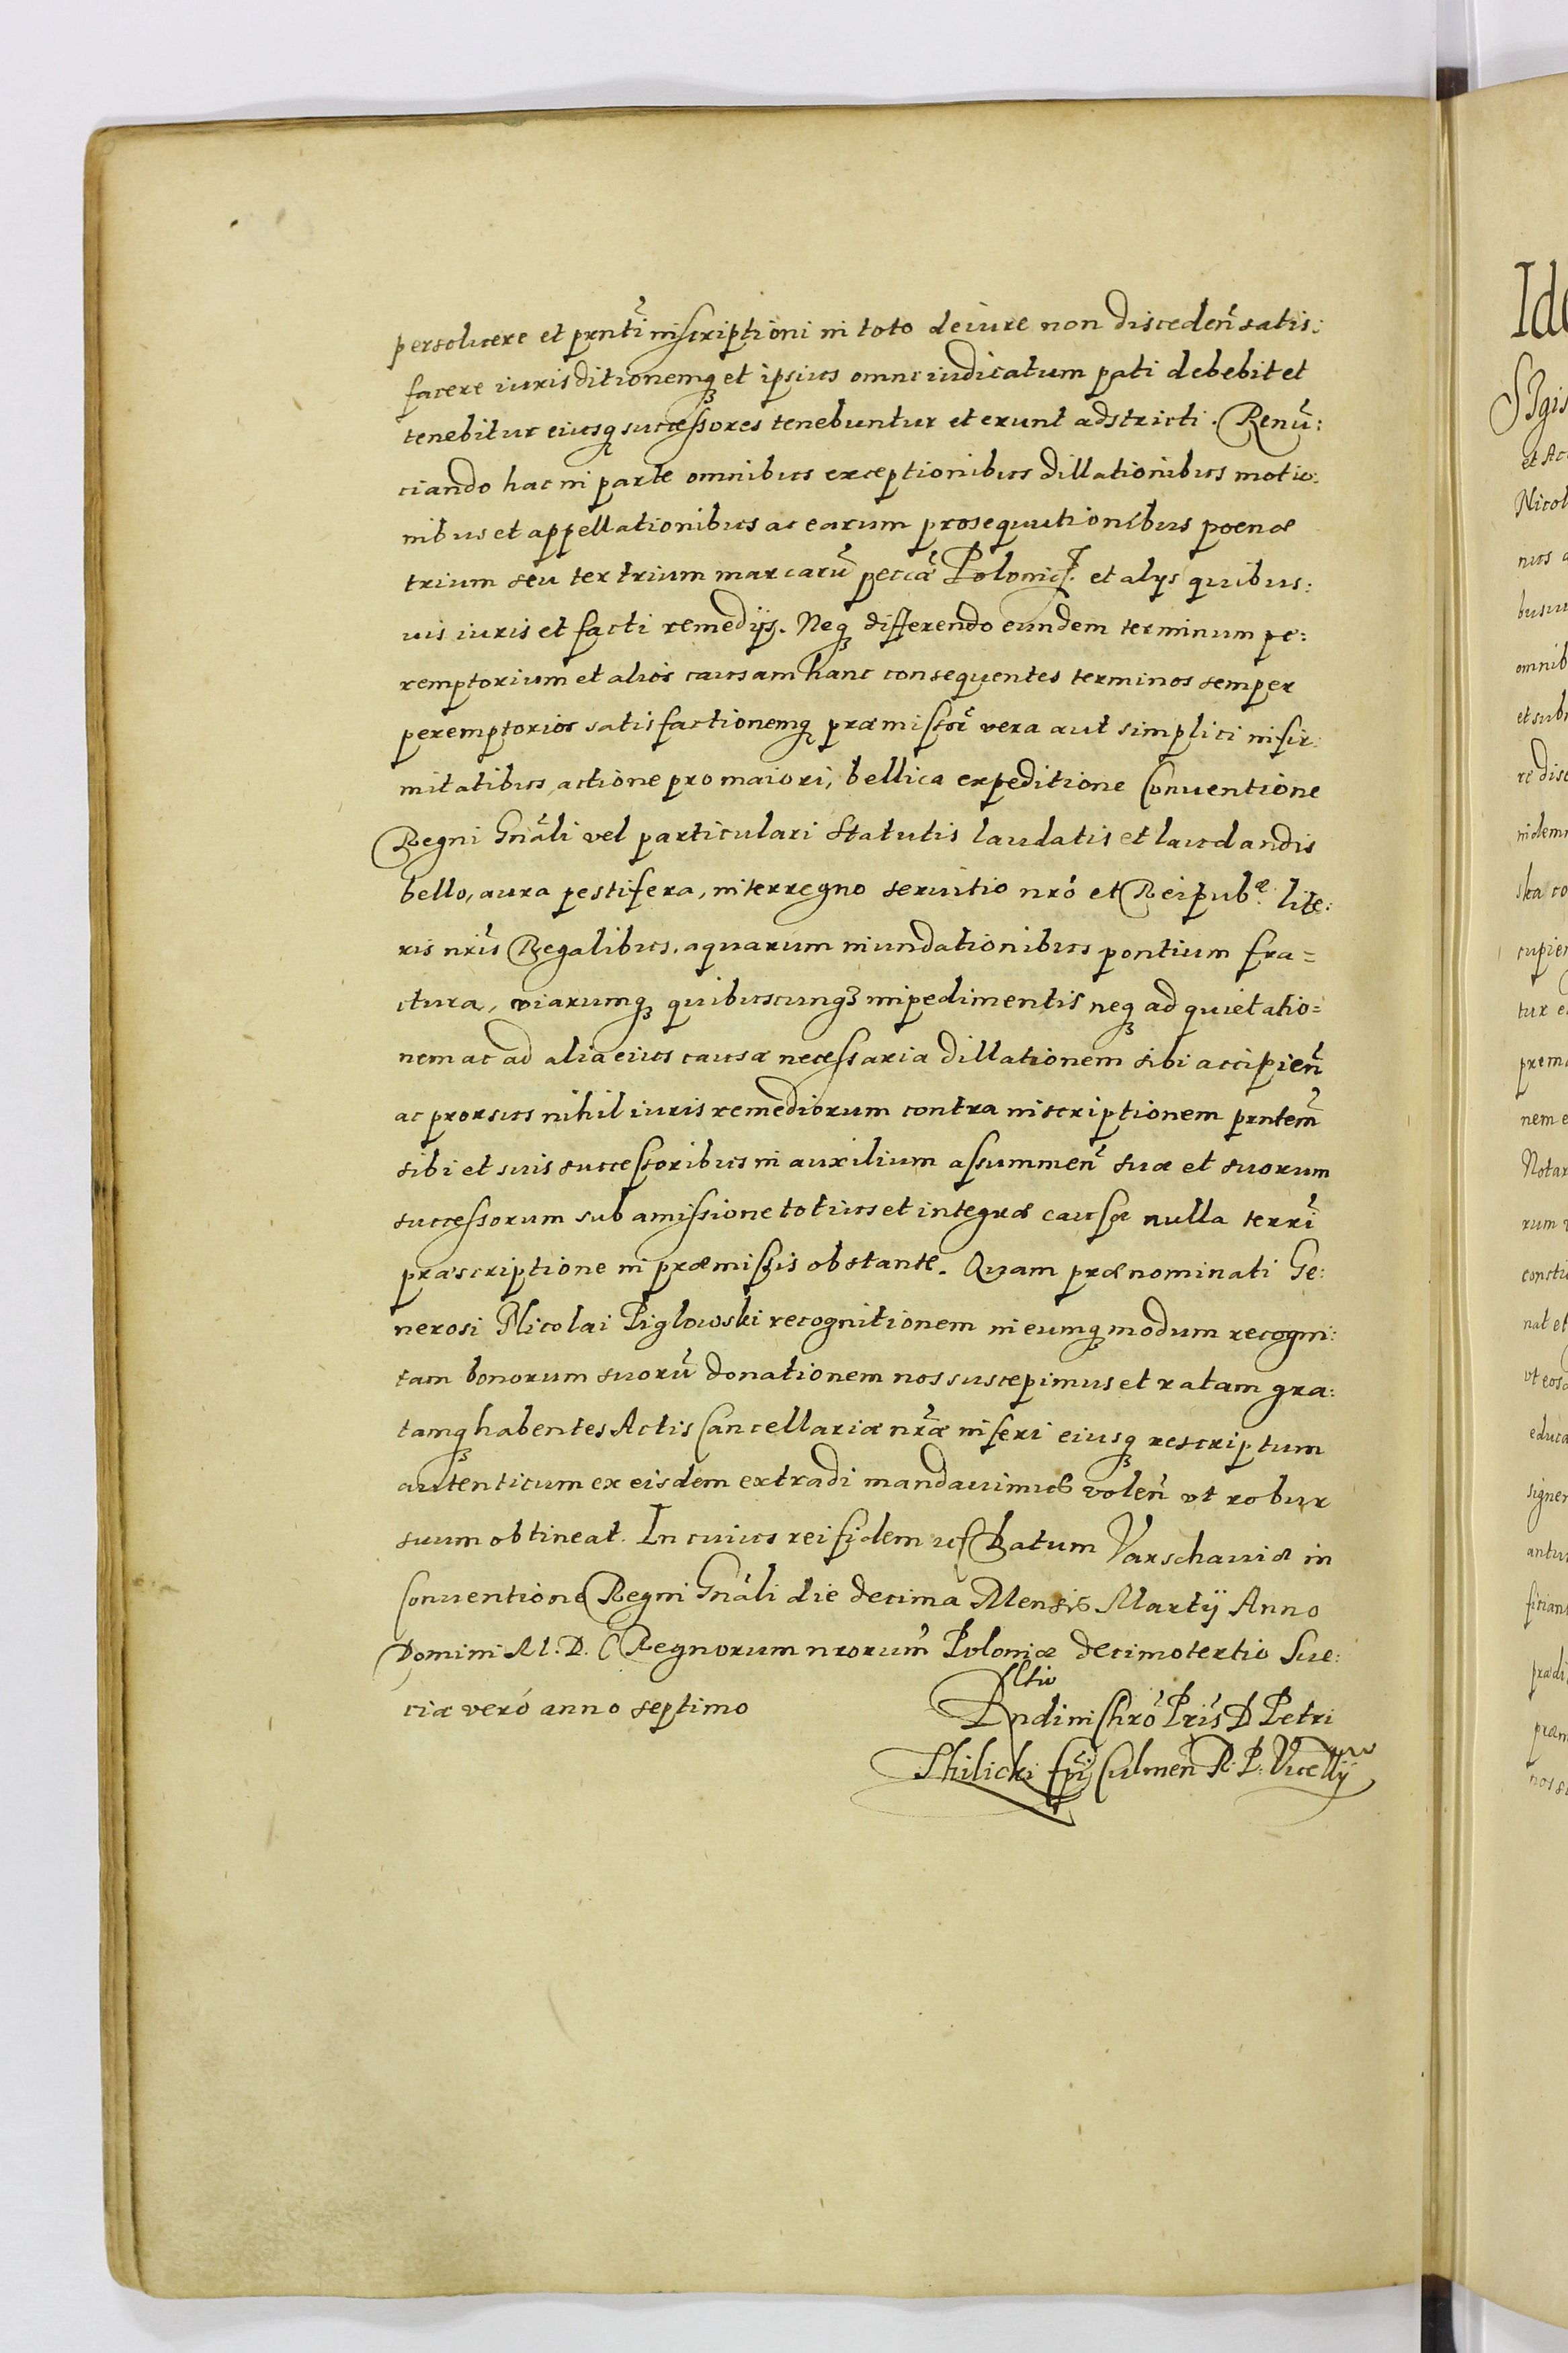 persoluere et prnti inscriptioni in toto de iure non disceden satis:
facere iurisditionemq et ipsius omne iudicatum pati debebit et
tenebitur eiusq successores tenebuntur et erunt adstricti. Renū:
ciando hac in parte omnibus exceptionibus dillationibus motio:
nibus et appellationibus ac earum prosequutionibus poenæ
trium seu ter trium marcarū peccæ Polonic. et alijs quibus:
uis iuris et facti remedijs. Neq differendo eundem terminum pe:
remptorium et alios causam hanc consequentes terminos semper
peremptorios satisfactionemq præmissor vera aut simplici infir:
mitatibus, actione pro maiori, bellica expeditione Conuentione
Regni Gnāli vel particulari Statutis laudatis et laudandis
bello, aura pestifera, interregno seruitio nrō et Reipubæ. lite:
ris nris Regalibus. aquarum inundationibus pontium fra=
ctura, viarumq quibuscunq impedimentis neq ad quietatio=
nem ac ad alia eius causæ necessaria dillationem sibi accipien
ac prorsus nihil iuris remediorum contra inscriptionem prntem
sibi et suis successoribus in auxilium assummen suæ et suorum
successorum sub amissione totius et integræ causæ nulla terri
præscriptione in præmissis obstante. Quam prænominati Ge:
nerosi Nicolai Piglowski recognitionem in eumq modum recogni:
tam bonorum suorū donationem nos suscepimus et ratam gra:
tamq habentes Actis Cancellariæ nræ inseri eiusq rescriptum
autenticum ex eisdem extradi mandauimus volen ut robur
suum obtineat. In cuius rei fidem Datum Varschauiæ in
Conuentione Regni Gnāli die decima Mensis Martij Anno
Domini M. D. C Regnorum nrorum Poloniæ decimotertio Sue:
ciæ verò anno septimo
Rltio
Rndi in Chrō Pris D Petri
Thilicki Epi Culmen R. P. Vicecllrij
Ide
Sgis
et Ac
Nicol
nus a
busuis
omnib
et sub
re disc
indem
ska co
cupien
tur e
præmi
nem e
Notar
rum
consti
nat et
ut eos
educa
signer
antur
ficiant
prædi
præm
nos su